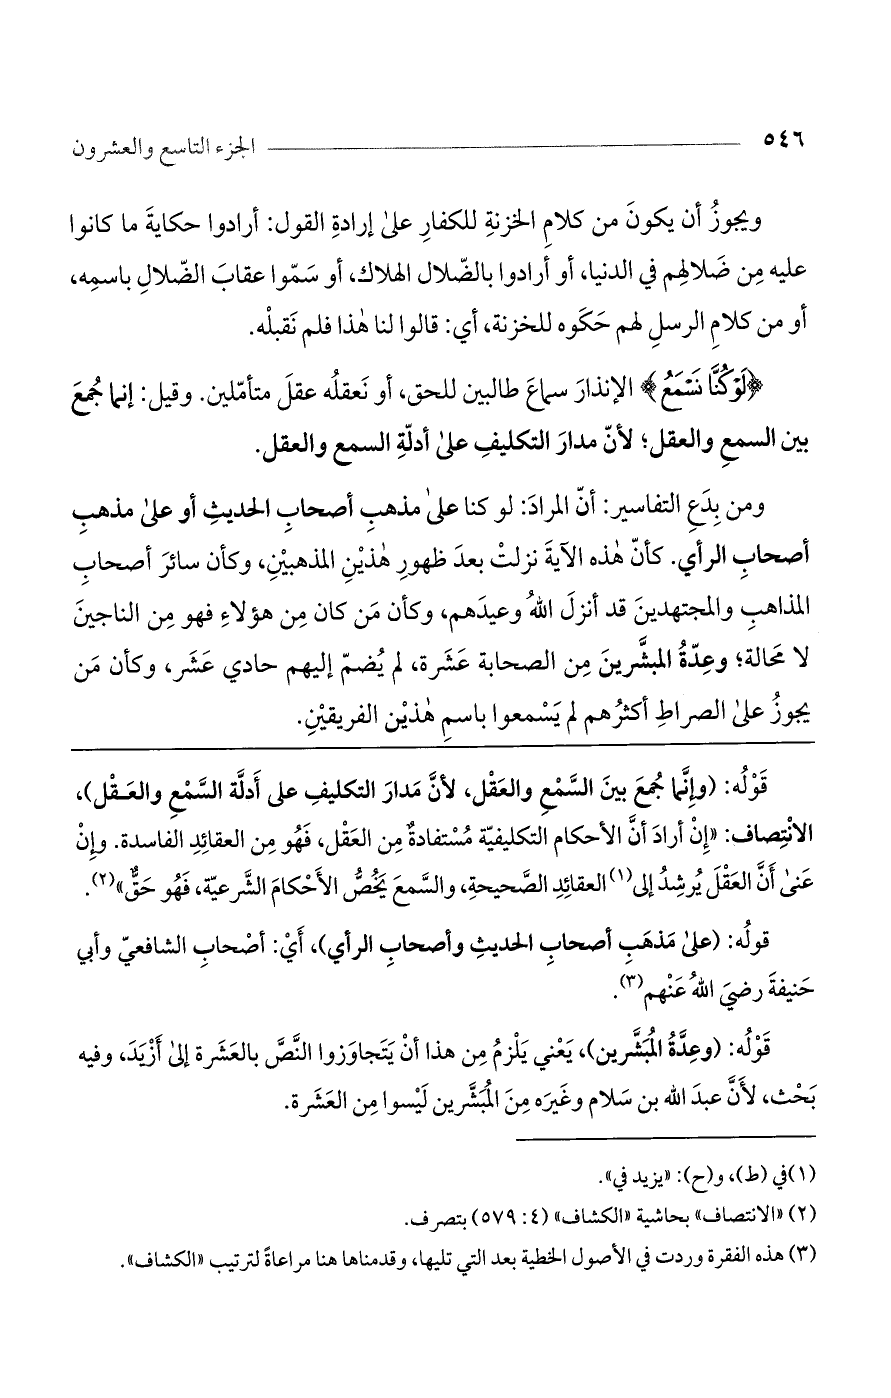 ٥٤٦ الجزء التاسع والعشرون
ويجوزُ أن يكونَ من كلامِ الخزنةِ للكفارِ علىٰ إرادةِ القول: أرادوا حكايةَ ما كانوا
عليه مِن ضَلالِهِم في الدنيا، أو أرادوا بالضّلال الهلاك، أو سَمّوا عقابَ الضّلالِ باسمِه،
أو من كلامِ الرسلِ لهم حَكَوه للخزنة، أي: قالوا لنا هٰذا فلم نَقبلْه.
﴿لَوْ كُنَّا نَسْمَعُ﴾ الإنذارَ سماعَ طالبين للحق، أو نَعقلُه عقلَ متأمّلين. وقيل: إنما جُمعَ
بين السمعِ والعقل؛ لأنّ مدارَ التكليفِ علىٰ أدلّةِ السمع والعقل.
ومن بِدَعِ التفاسير: أنّ المرادَ: لو كنا علىٰ مذهبِ أصحابِ الحديثِ أو علىٰ مذهبِ
أصحابِ الرأي. كأنّ هٰذه الآيةَ نزلتْ بعدَ ظهورِ هٰذيْنِ المذهبيْنِ، وكأن سائرَ أصحابِ
المذاهبِ والمجتهدينَ قد أنزلَ اللهُ وعيدَهم، وكأن مَن كان مِن هؤلاءِ فهو مِن الناجينَ
لا مَحالة؛ وعِدّةُ المبشَّرينَ مِن الصحابة عَشَرة، لم يُضمّ إليهم حادي عَشَر، وكأن مَن
يجوزُ علىٰ الصراطِ أكثرُهم لم يَسْمعوا باسمِ هٰذيْن الفريقيْنِ.
قَوْلُه: (وإنَّما جُمعَ بينَ السَّمْعِ والعَقْل، لأنَّ مَدارَ التكليفِ على أَدلَّة السَّمْعِ والعَـقْل)،
الانْتِصاف: «إنْ أرادَ أنَّ الأحكام التكليفيّة مُسْتفادةٌ مِن العَقْل، فَهُو مِن العقائِدِ الفاسدة. وإنْ
عنىٰ أنَّ العَقْلَ يُرشِدُ إلى(١) العقائِدِ الصَّحيحةِ، والسَّمعَ يَخُصُّ الأحْكامَ الشَّرعيّة، فَهُو حَقٌّ»(٢).
قولُه: (علىٰ مَذهَبِ أصحابِ الحديثِ وأصحابِ الرأي)، أيْ: أصْحابِ الشافعيّ وأبي
حَنيفةَ رضيَ اللهُ عَنْهم(٣).
قَوْلُه: (وعِدَّةُ المُبَشَّرين)، يَعْني يَلْزمُ مِن هذا أنْ يَتَجاوَزوا النَّصَّ بالعَشَرة إلىٰ أزْيَدَ، وفيه
بَحْث، لأنَّ عبدَ الله بن سَلام وغَيرَه مِنَ المُبَشَّرين لَيْسوا مِن العَشَرة.
(١) في (ط)، و(ح): «يزيد في».
(٢) «الانتصاف» بحاشية «الكشاف» (٤: ٥٧٩) بتصرف.
(٣) هذه الفقرة وردت في الأصول الخطية بعد التي تليها، وقدمناها هنا مراعاةً لترتيب «الكشاف».